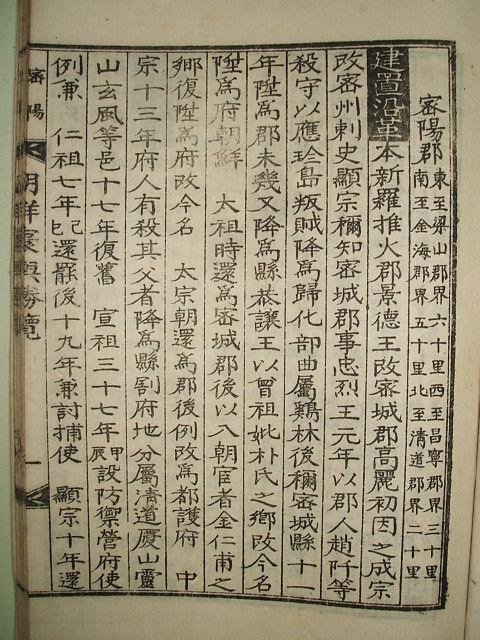 密陽郡 東至梁山郡界六十里西至昌寧郡界三十里
南至金海郡界五十里北至清道郡界二十里
建置沿革本新羅推火郡景德王改密城郡高麗初因之成宗
改密州刺史顯宗稱知密城郡事忠烈王元年以郡人趙阡等
殺守以應珍島叛賊降爲歸化部曲屬鷄林後稱密城縣十一
年陞爲郡未幾又降爲縣恭讓王以曾祖妣朴氏之鄕改今名
陞爲府朝鮮 太祖時還爲密城郡後以入朝宦者金仁甫之
鄕復陞爲府改今名 太宗朝還爲郡後例改爲都護府 中
宗十三年府人有殺其父者降爲縣割府地分屬清道慶山靈
山玄風等邑十七年復舊 宣祖三十七年甲辰設防禦營府使
例兼 仁祖七年己巳還罷後十九年兼討捕使 顯宗十年還
密陽
朝鮮寰輿勝覽
一